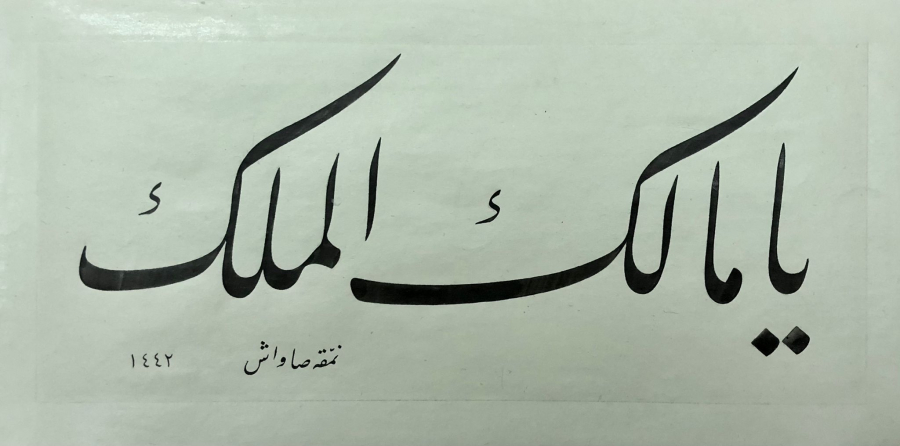 يا مالك الملك
نمّقه صاواش ١٤٤٢